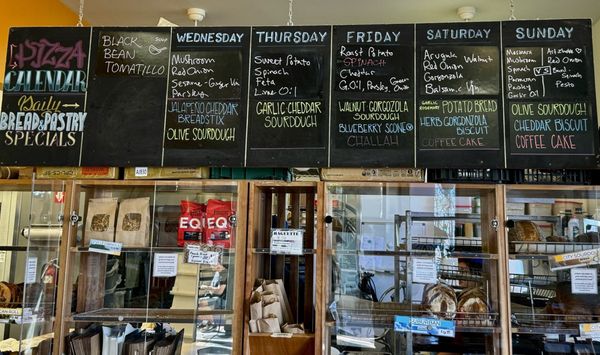 PIZZA
CALENDAR
Daily
BREAD & PASTRY
SPECIALS
BLACK
BEAN
TOMATILLO
SOUP
WEDNESDAY
Mushroom
Red Onion
Sesame - Ginger Vin
Parsley
JALAPEÑO CHEDDAR
BREADSTIX
OLIVE SOURDOUGH
THURSDAY
Sweet Potato
Spinach
Feta
Lemon O.O.
GARLIC CHEDDAR
SOURDOUGH
FRIDAY
Roast Potato
SPINACH
Cheddar
G.Oil, Parsley, Green Onion
WALNUT GORGOZOLA
SOURDOUGH
BLUEBERRY SCONE
CHALLAH
SATURDAY
Arugula Walnut
Red Onion
Gorgonzola
Balsamic Vin
GARLIC ROSEMARY POTATO BREAD
HERB GORGONZOLA
BISCUIT
COFFEE CAKE
SUNDAY
Mushroom
Red Onion
Spinach
Parsley
Garlic Oil
VS
Artichoke
Red Onion
Basil
Spinach
OLIVE SOURDOUGH
CHEDDAR BISCUIT
COFFEE CAKE
EQ
EQU
BAGUETTE
CITY SOUR
SUBURBAN